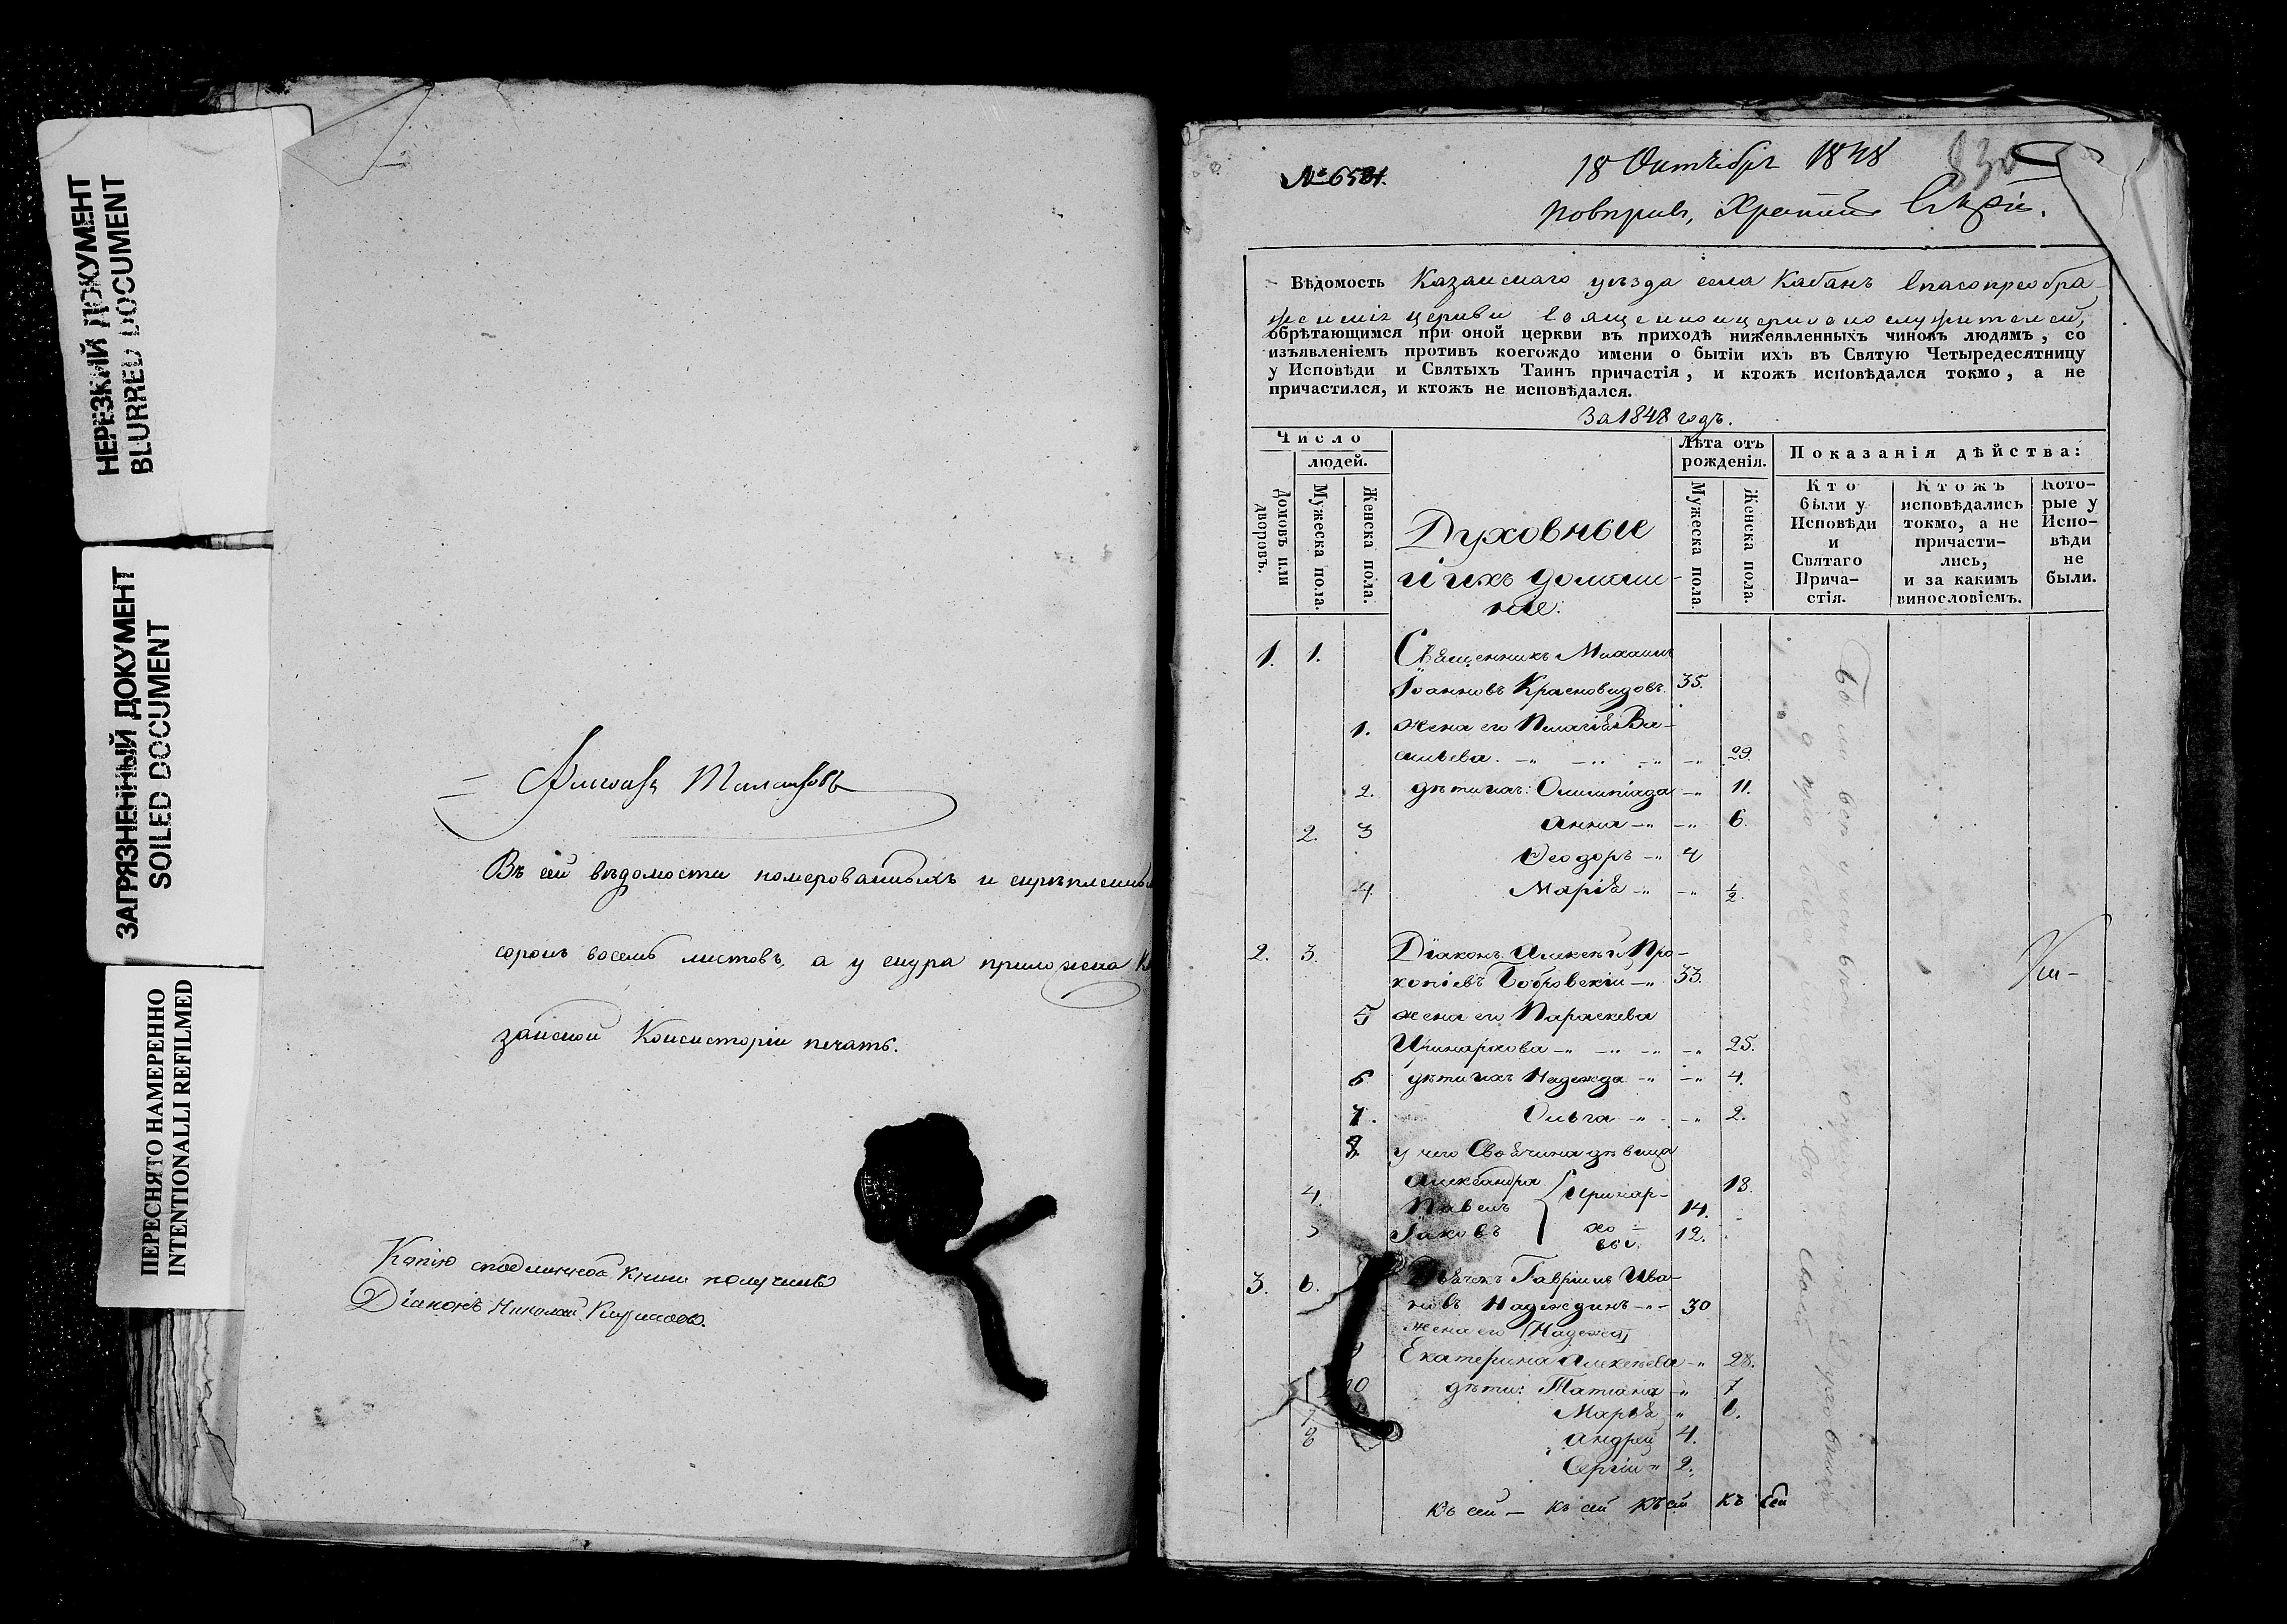 НЕРЕЗКИЙ ДОКУМЕНТ
BLURRED DOCUMENT
ЗАГРЯЗНЕННЫЙ ДОКУМЕНТ
SOILED DOCUMENT
ПЕРЕСНЯТО НАМЕРЕННО
INTENTIONALLI REFILMED
Въ сей вѣдомости номерованныхъ и скрѣпленны
сорокъ восемь листовъ, а у снура приложена Ка
занской Консисторіи печать.
Копію съ подлинной книги получилъ
Діаконъ Николай
№ 6531.
18 Октября 1848
830
Вѣдомость Казанскаго уѣзда села Кабанъ Спасопреобра-
женскія церкви Священноцерковнослужителей,
обрѣтающимся при оной церкви въ приходѣ нижеявленныхъ чиновъ людямъ, со
изъявленіемъ противъ коегождо имени о бытіи ихъ въ Святую Четыредесятницу
у Исповѣди и Святыхъ Таинъ причастія, и ктожъ исповѣдался токмо, а не
причастился, и ктожъ не исповѣдался.
За 1848 годъ.
Число
людей.
Домовъ или дворовъ.
Мужеска пола.
Женска пола.
Духовные
и ихъ домаш-
ніе:
Лѣта отъ
рожденія.
Мужеска пола.
Женска пола.
Показанія дѣйства:
Кто
были у
Исповѣди
и
Святаго
Прича-
стія.
Ктожъ
исповѣдались
токмо, а не
причасти-
лись,
и за какимъ
винословіемъ.
Кото-
рые у
Испо-
вѣди
не
были.
1. 1. Священникъ Михаилъ
Іоанновъ Красновидовъ. 35.
1. жена его Пелагія Ва-
сильева. -"- -"- -"- -"- 29.
2. дѣти ихъ: Олимпіада -"- 11.
2. 3 Анна -"- -"- 6.
Ѳеодоръ -"- 4
4. Марія -"- -"- 1/2.
2. 3. Діаконъ Алексѣй Про-
копіевъ Бобровскій -"- 33.
5 жена его Параскева
-"- -"- -"- -"- 25.
6 дѣти ихъ Надежда -"- -"- 4.
7. Ольга -"- -"- 2.
8 у него Своячина дѣвица
Александра 18.
4. Павелъ 14.
5 Іаковъ 12.
3. 6. Дьячекъ Гавріилъ Ива-
новъ Надеждинъ -"- 30
жена его
9 Екатерина Алексѣева -"- 28.
10 дѣти: Татіана -"- 7
Марья " 6.
7 Андрей 4.
8 Сергій " 2.
Къ сей - къ сей къ сей къ сей